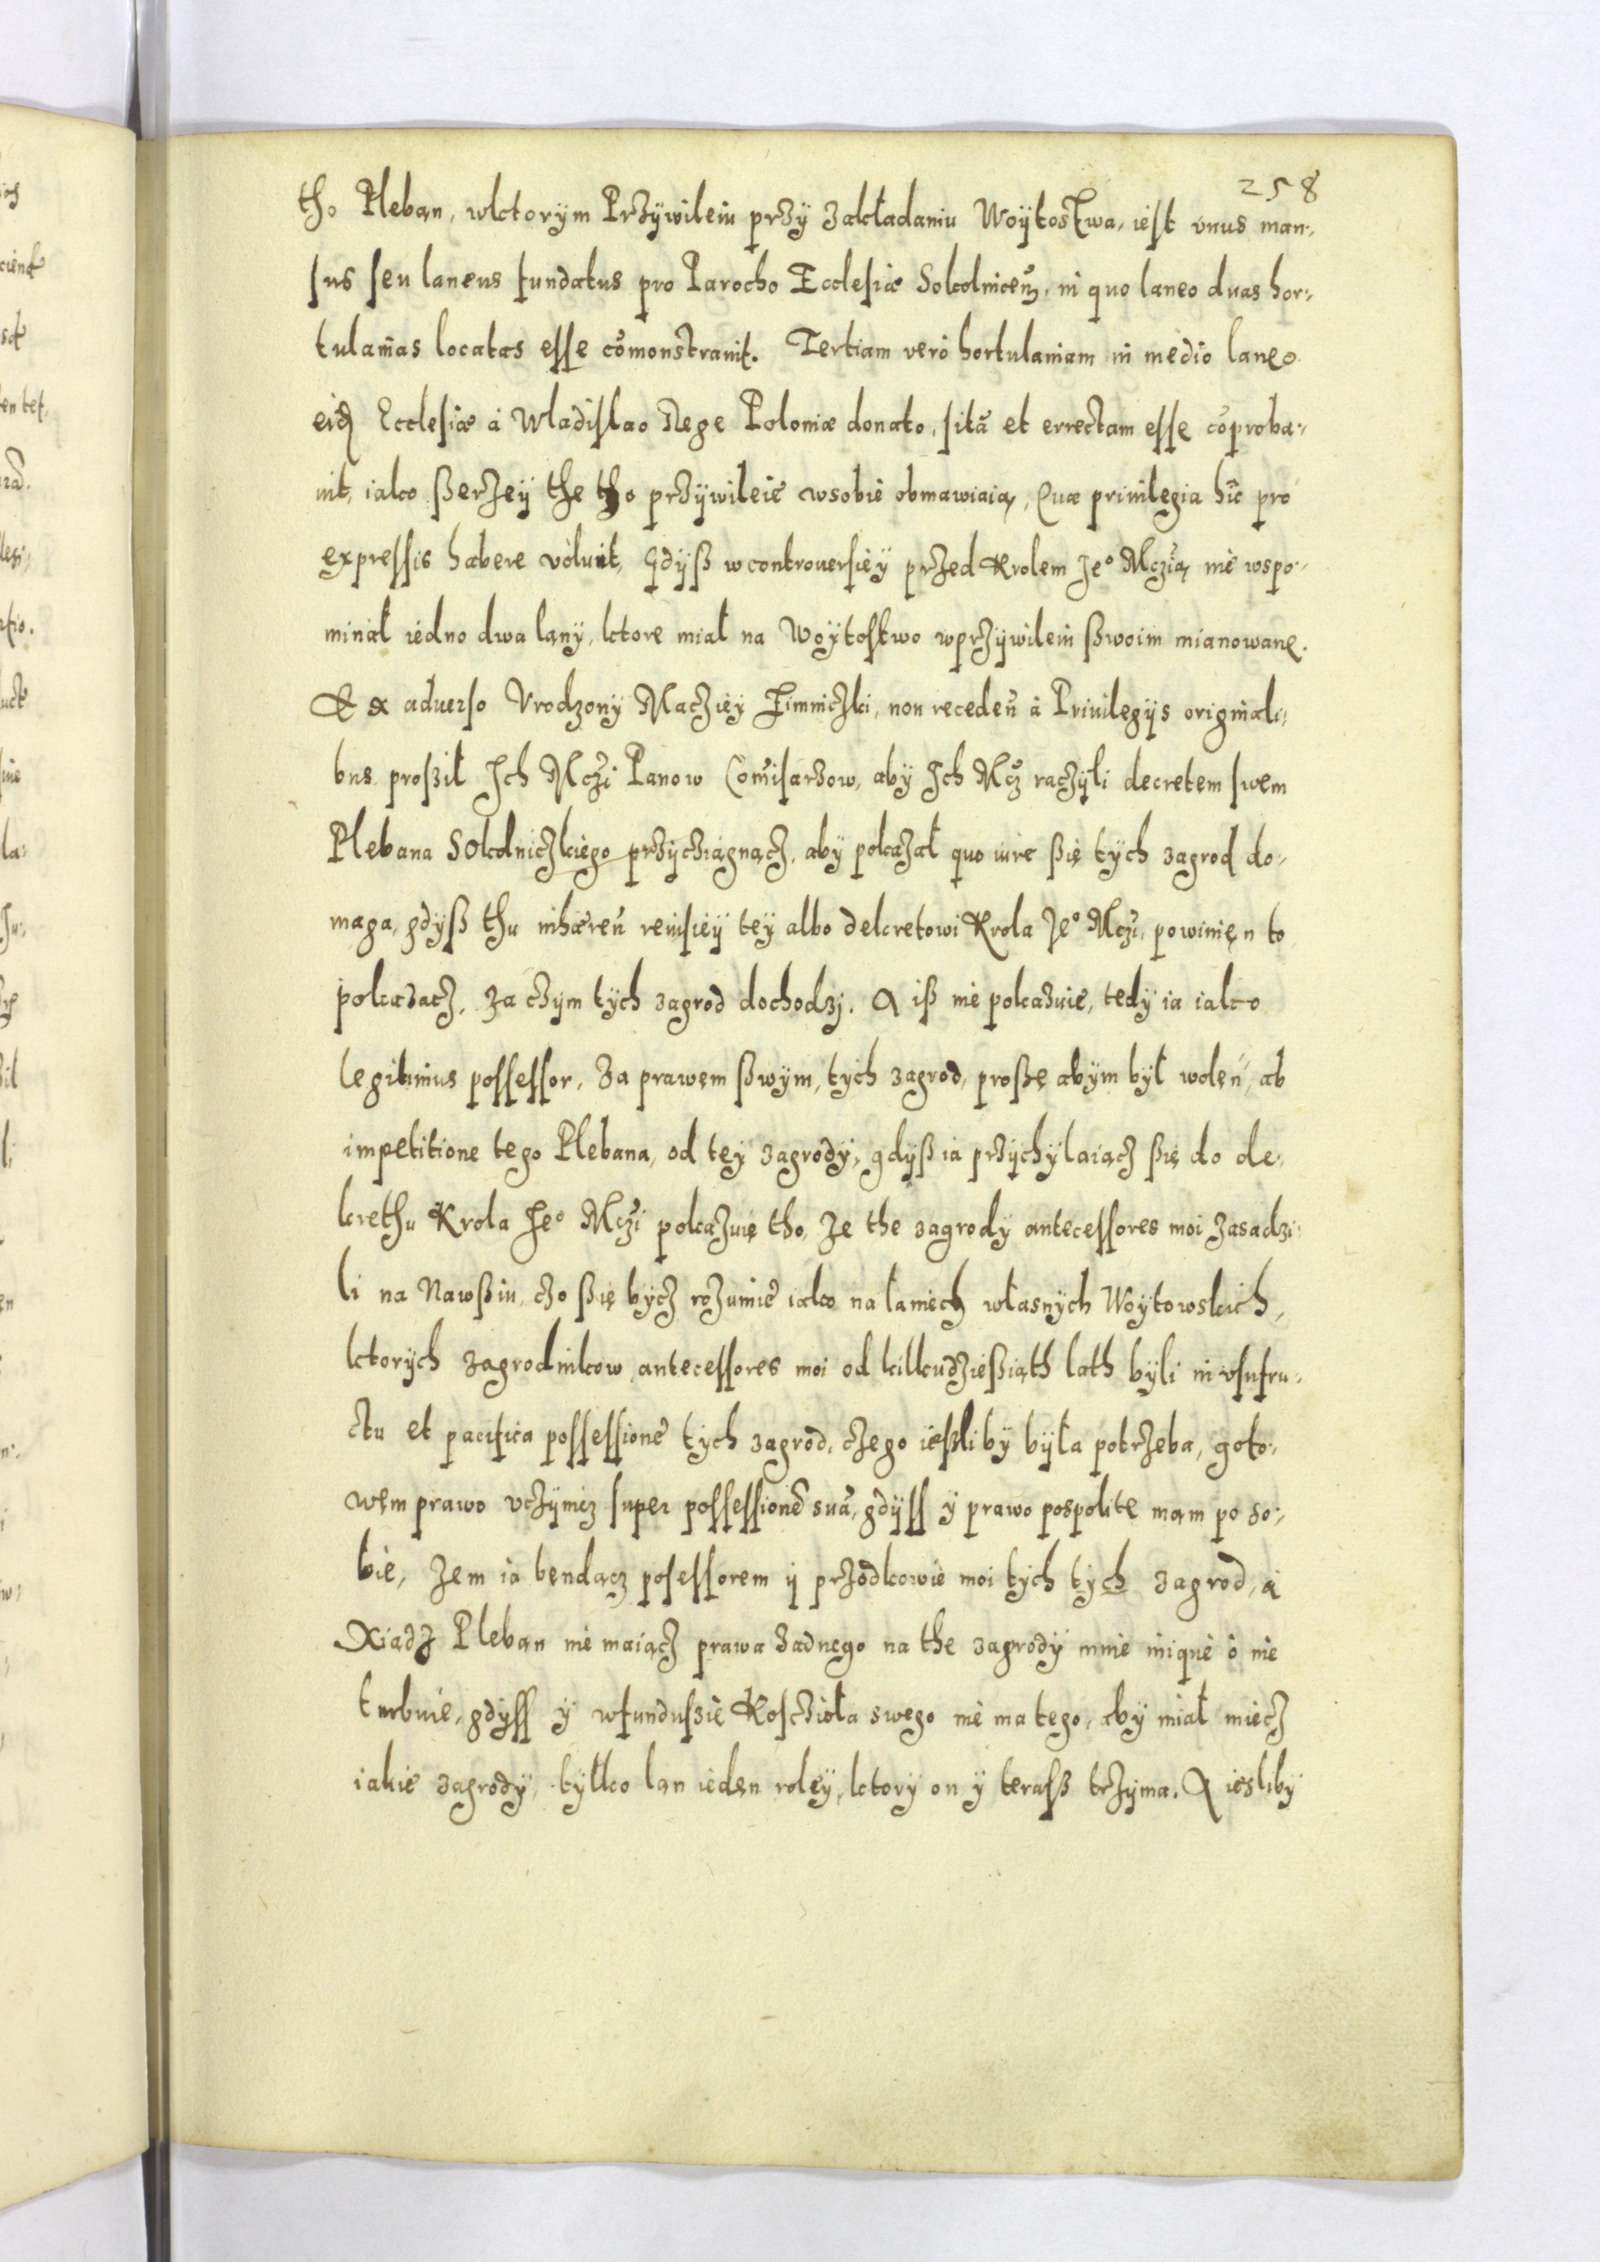 258
tho Pleban, wktorÿm Przÿwileiu przÿ zakładaniu Woÿtostwa, iest vnus man-
sus seu laneus fundatus pro Parocho Ecclesiæ Sokolnicen̄, in quo laneo duas hor-
tulan̄ias locatas esse cōmonstrauit. Tertiam verò hortulaniam in medio laneo
eiđ Ecclesiæ à Wladislao Rege Poloniæ donato, sitā et errectam esse cōproba-
uit, iako ßerzeÿ the tho przÿwileie wsobie obmawiaią, Quæ priuilegia hîc pro
expressis habere voluit, Gdÿß w controuersieÿ przed Krolem Je° Mczią nie wspo-
minał iedno dwa lanÿ, ktore miał na Woÿtostwo wprzÿwileiu ßwoim mianowane.
Et ex aduerso Vrodzonÿ Maczieÿ Zimniczki, non receden̄ à Priuilegÿs originali-
bus proßił Ich Mczi Panow Com̄isarzow, abÿ Ich Mcz raczÿli decretem swem
Plebana Sokolniczkiego przÿcziągnącz, abÿ pokazał quo iure ßię tÿch zagrod do-
maga, gdÿß thu inhæren̄ reuisieÿ teÿ albo dekretowi Krola Je° Mczi, powinien to
pokazacz, za czÿm tÿch zagrod dochodzi. A iß nie pokazuie, tedÿ ia iako
legitimus possessor, za prawem ßwÿm, tÿch zagrod, proßę abÿm bÿł wolen, ab
impetitione tego Plebana, od teÿ zagrodÿ, gdÿß ia przÿchÿlaiącz ßię do de-
krethu Krola Je° Mczi pokazuię tho, że the zagrodÿ antecessores moi zasadzi-
li na Nawßiu, czo ßię bÿcz rozumie iako na łaniech własnÿch Woÿtowskich,
ktorÿch zagrodnikow antecessores moi od kilkudzießiąth lath bÿli in vsufru-
ctu et pacifica possessione tÿch zagrod, czego ießlibÿ bÿła potrzeba, goto-
wem prawo vczÿnicz super possessionē suā, gdÿss ÿ prawo pospolite mam po so-
bie, żem ia bendącz posessorem ÿ przodkowie moi tÿch tÿch zagrod, à
Xiądz Pleban nie maiącz prawa żadnego na the zagrodÿ mnie iniquè o nie
turbuie, gdÿss ÿ wfunduszie Kosczioła swego nie ma tego, abÿ miał miecz
iakie zagrodÿ, tÿlko lan ieden roleÿ, ktorÿ on ÿ terasß trzÿma. A ieslibÿ